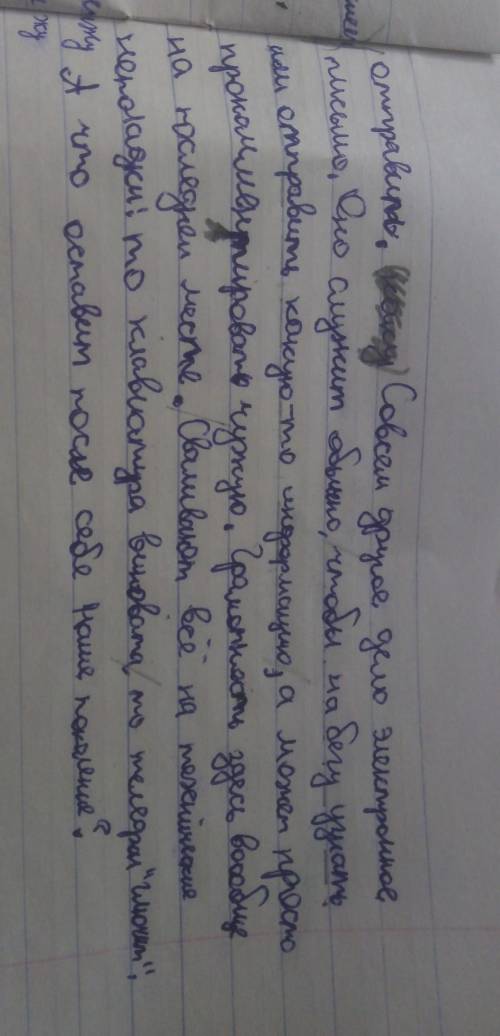 отправить. Совсем другое дело электронное
письмо. Оно служит обычно, чтобы на бегу узнать
или отправить какую-то информацию, а может просто
прокомментировать чужую. Грамотность здесь вообще
на последнем месте. Сваливают всё на технические
неполадки: то клавиатура виновата, то телефон "глючит",
А что оставит после себя наше поколение?